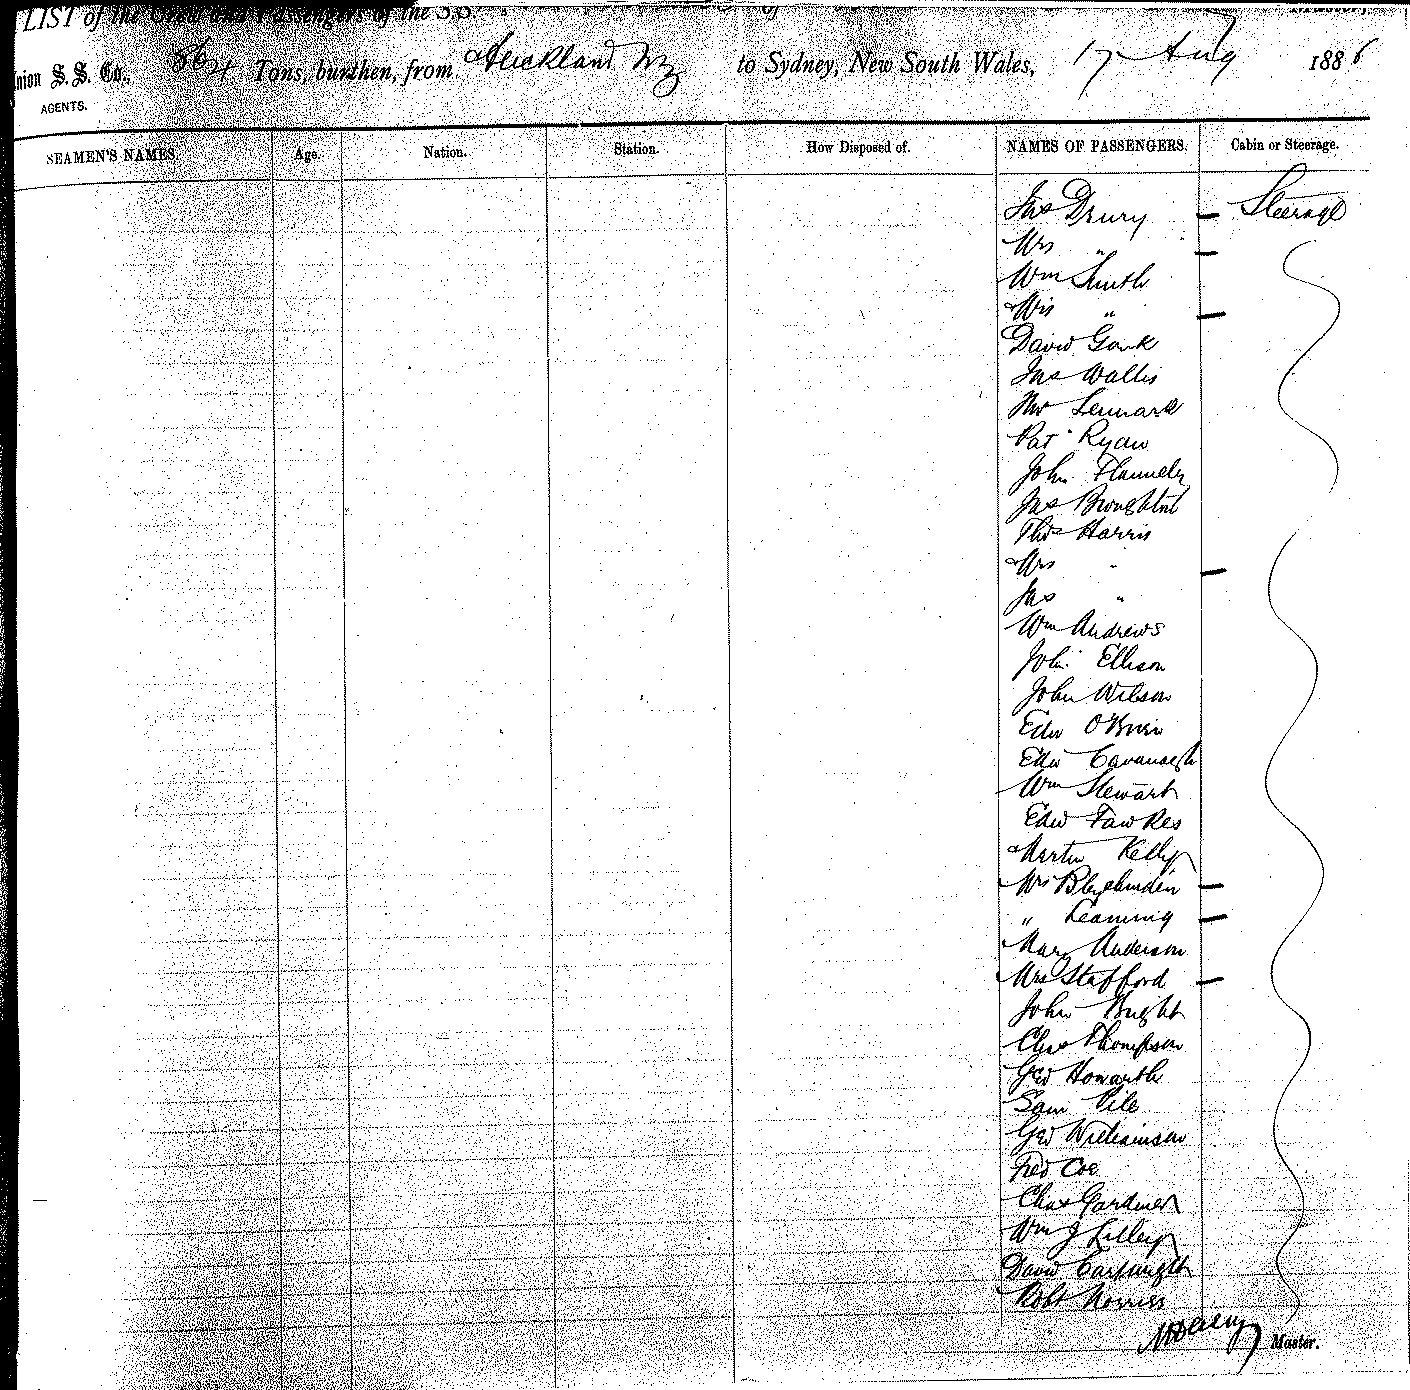 LIST of the Crew and Passengers of the S.S. of Master,
Union S. S. Co., 864 Tons, burthen, from Auckland NZ to Sydney, New South Wales, 17 Aug 1886
AGENTS.
SEAMEN'S NAMES. Age. Nation. Station. How Disposed of. NAMES OF PASSENGERS. Cabin or Steerage.
Jas Drury — Steerage
Mrs " —
Wm Smith
Mrs " —
David Gonk
Jas Wallis
Lennard
Pat Ryan
John Flannely
Jas Broughton
Thos Harris
Mrs " —
Jas "
Wm Andrews
John Ellison
John Wilson
Edw O'Brien
Edw Cavanagh
Wm Stewart
Edw Fawkes
Martin Kelly
Mrs —
" Leaning —
Mary Anderson
Mrs Stafford —
John Bright
Chas Thompson
Geo Howarth
Sam Pile
Geo Williamson
Fred Coe
Chas Gardiner
Wm J Lilley
David
Robt Norriss
Master.